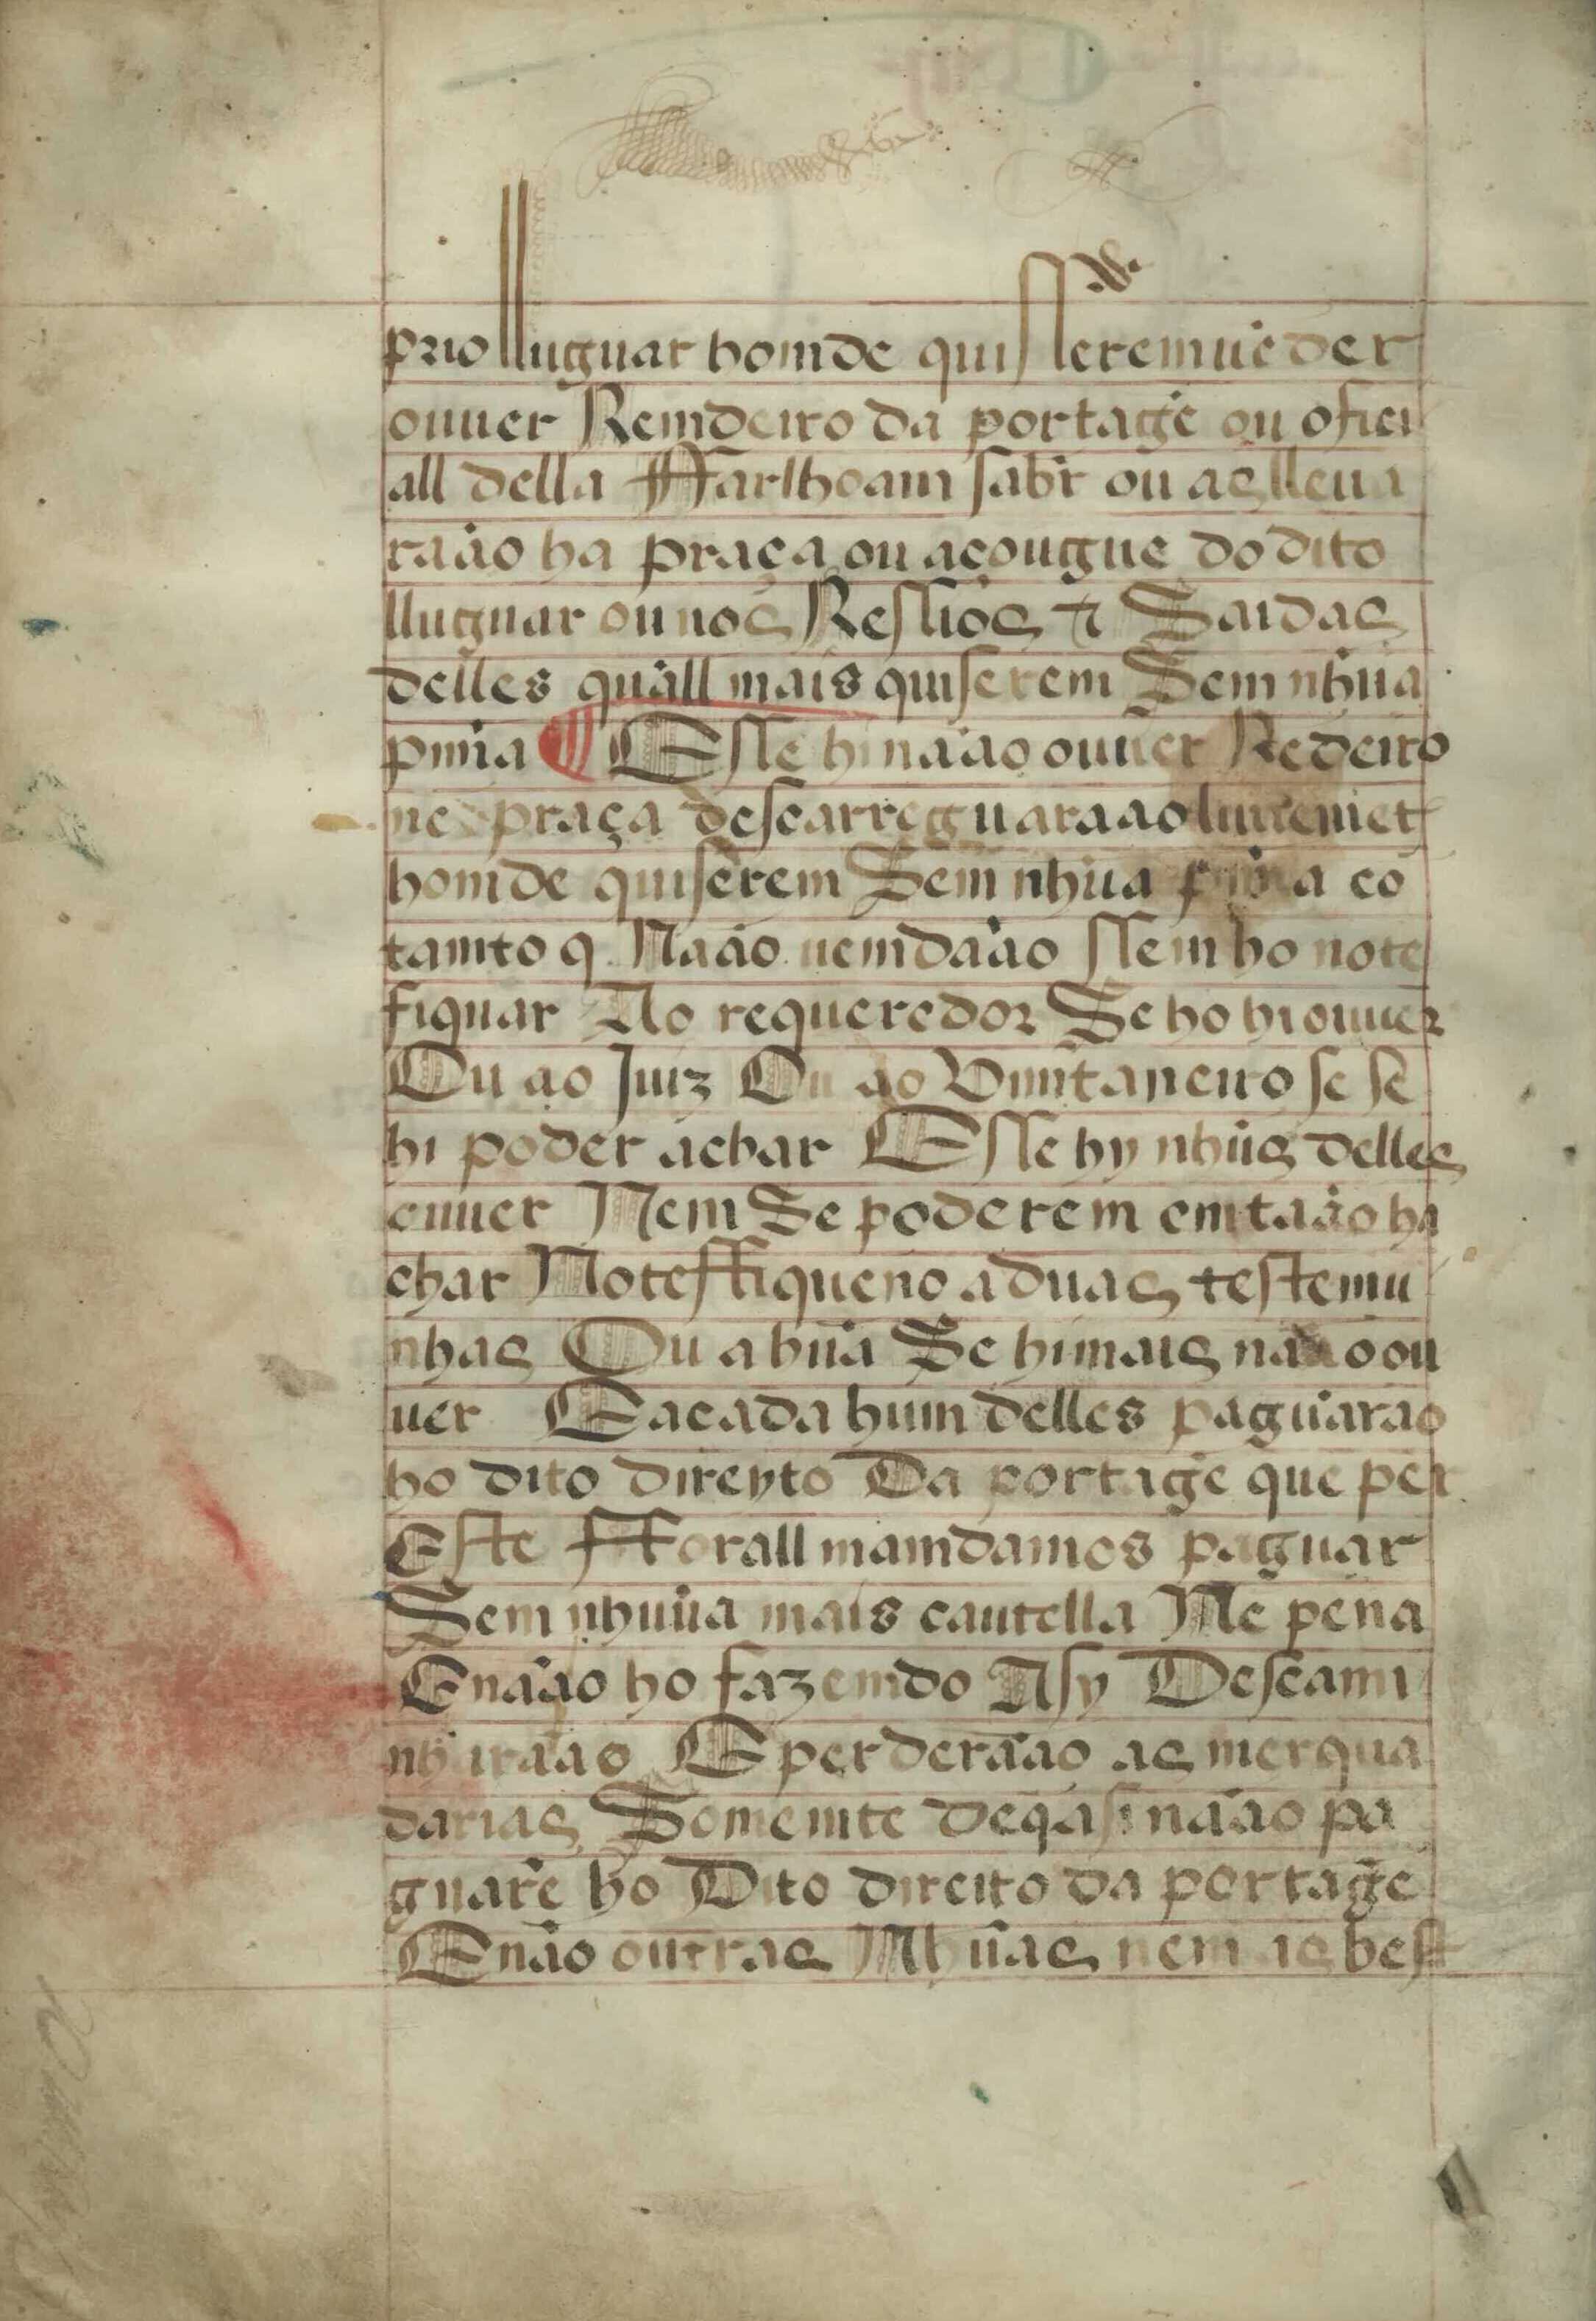 prio lluguar homde quisseremuẽder
ouuer Remdeiro da portagẽ ou ofici
all della ffarlhoam sabr̃ ou as lleua
raão ha praça ou açougue do dito
lluguar ou nos Ressios & Saidas
delles quall mais quiserem Sem nhũa
pnna ¶ Esse hi naão ouuer Rẽdeiro
nẽ praça descarreguaraão liuremẽt
homde quiserem Sem nhũa pna cõ
tamto q̃ Naão uemdaão ssem ho note
fiquar Ao requeredor Se ho hi ouuer
Ou ao Juiz Ou ao Vimtaneiro se se
hi poder achar Esse hy nhũs delles
ouuer Nem Se poderem emtaão ha
char Notessfiqueno a duas testemu
nhas Ou a hũa Se hi mais naão ou
uer E a cada hum delles paguarão
ho dito direyto Da portagẽ que per
Este fforall mamdamos paguar
Sem nhuũa mais cautella Nẽ pena
E naão ho fazemdo Asy Descami
nharaão E perderaão as merqua
darias Somemte de q̃ asi naão pa
guarẽ ho Dito direito da portagẽ
E não outras Nhũas nem as best